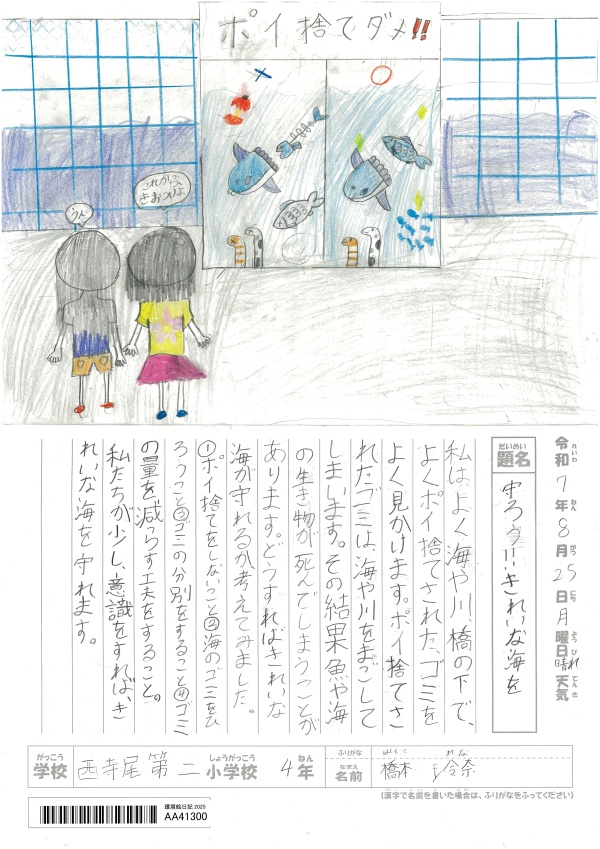 ポイ捨てダメ!!
これからは
きおつけよ
うん
令和7年8月25日月曜日 晴れ 天気
れいわ ねん がつ にち ようび はれ てんき
だいめい
題名
守ろう!!きれいな海を
私は、よく海や川、橋の下で、
よくポイ捨てされた、ゴミを
よく見かけます。ポイ捨てさ
れたゴミは、海や川をまごして
しまいます。その結果魚や海
の生き物が死んでしまうことが
あります。どうすればきれいな
海が守れるか考えてみました。
①ポイ捨てをしないこと②海のゴミをひ
ろうこと③ゴミの分別をすること④ゴミ
の量を減らす工夫をすること。
私たちが少し、意識をすれば、き
れいな海を守れます。
がっこう
学校
西寺尾第二小学校 4年
しょうがっこう ねん
ふりがな
なまえ
名前
橋本 玲奈
(漢字で名前を書いた場合は、ふりがなをふってください)
環境絵日記2025
AA41300